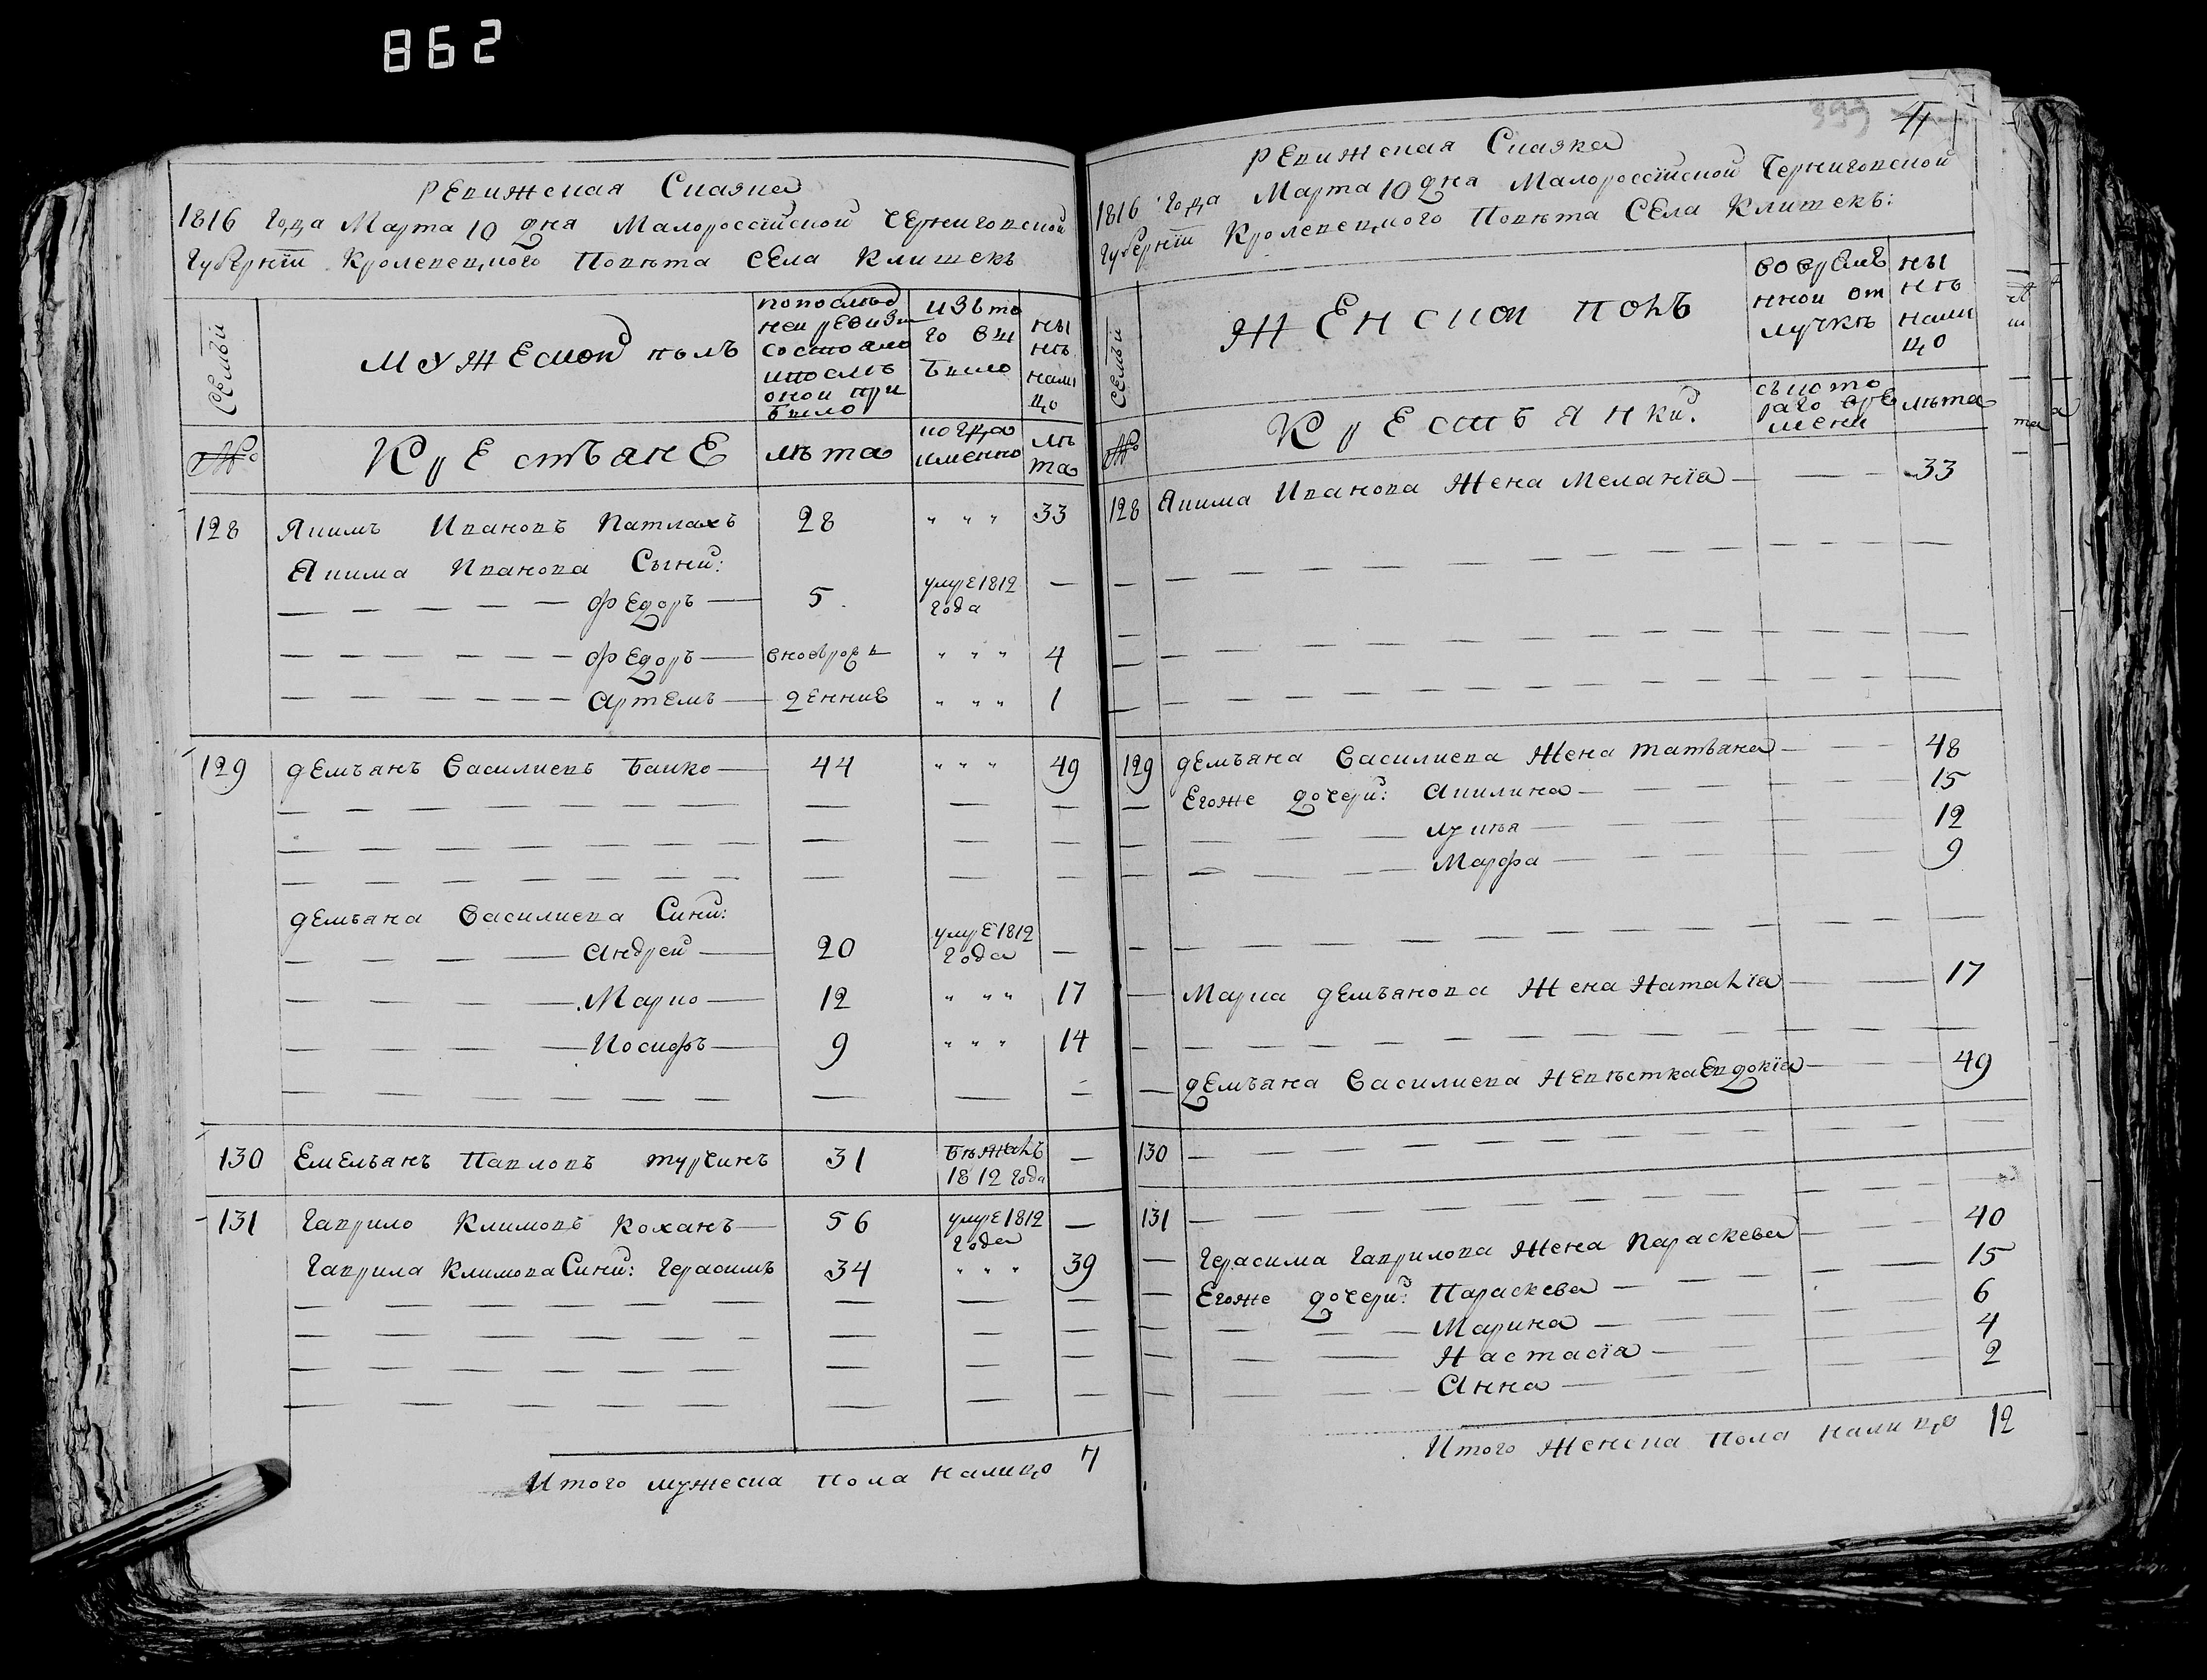 862
Ревижская Сказка
1816 Года Марта 10 дня Малороссійской Черниговской
Губерніи Кролевецкого Повѣта Села Клишекъ
Семьи
Мужеской полъ
по послѣд
ней ревизи
состояло
и послѣ
оной при
было
изъ то
го вы
было
ны
нѣ
нали
цо
№
Крестьяне
лѣта
когда
именно
лѣ
та
128 Якимъ Ивановъ Патлахъ 28 " " " 33
Якима Иванова Сыни:
Федоръ 5 умре 1812 Года
Федоръ вновьрож " " " 4
Артемъ денние " " " 1
129 Демьянъ Василиевъ Бапко 44 " " " 49
Демьяна Василиева Сини:
Андрей 20 умре 1812 Года
Марко 12 " " " 17
Иосифъ 9 " " " 14
130 Емельянъ Павловъ Турчинъ 31 Бѣжалъ 1812 Года
131 Гаврило Климовъ Коханъ 56 умре 1812 Года
Гаврила Климова Сини: Герасимъ 34 " " " 39
Итого мужеска пола налицо 7
399 41
Ревижская Сказка
1816 Года Марта 10 дня Малороссійской Черниговской
Губерніи Кролевецкого Повѣта Села Клишекъ:
Семьи
Женской полъ
во време
нной от
лучкѣ
ны
нѣ
нали
цо
№
Крестьянки.
съ кото
раго вре
мени
лѣта
128 Якима Иванова Жена Меланія 33
129 Демьяна Василиева Жена Татьяна 48
Егоже дочери: Акилина 15
Лукія 12
Марфа 9
Марка Демьянова Жена Наталія 17
Демьяна Василиева Невѣстка Евдокія 49
130
131
Герасима Гаврилова Жена Параскева 40
Егоже дочери: Параскева 15
Марина 6
Настасія 4
Анна 2
Итого Женска пола налицо 12